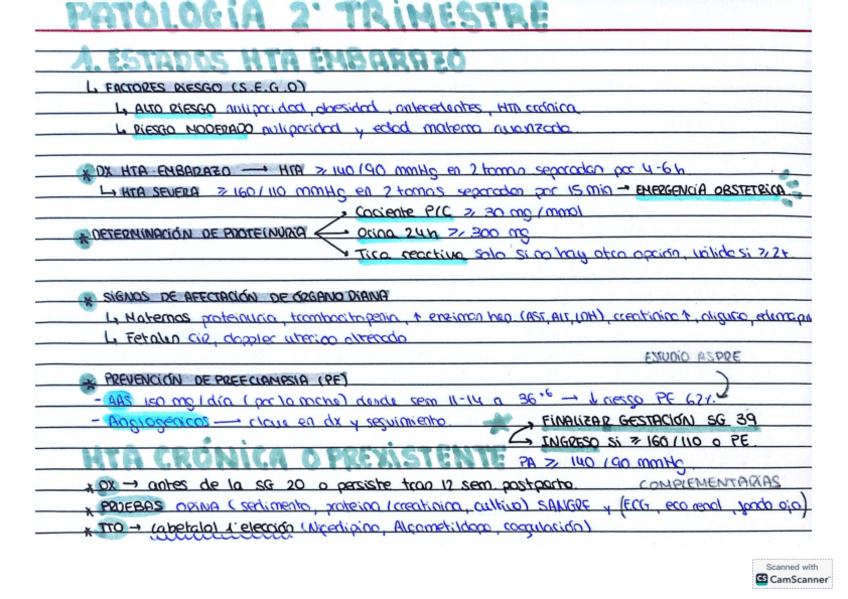 PATOLOGÍA 2º TRIMESTRE
1. ESTADOS HTA EMBARAZO
↳ FACTORES RIESGO (S.E.G.O)
↳ ALTO RIESGO nuliparidad, obesidad, antecedentes, HTA crónica
↳ RIESGO MODERADO nuliparidad y edad materna avanzada.
* DX HTA EMBARAZO → HTA ≥ 140/90 mmHg en 2 tomas separadas por 4-6h
↳ HTA SEVERA ≥ 160/110 mmHg en 2 tomas separadas por 15 min → EMERGENCIA OBSTETRICA
* DETERMINACIÓN DE PROTEINURIA
Cociente P/C ≥ 30 mg/mmol
Orina 24h ≥ 300 mg
Tira reactiva solo si no hay otra opción, válida si ≥ 2+
* SIGNOS DE AFECTACIÓN DE ÓRGANO DIANA
↳ Maternos proteinuria, trombocitopenia, ↑ enzimas hep. (AST, ALT, LDH), creatinina ↑, oliguria,
↳ Fetales CIR, doppler uterino alterado
ESTUDIO ASPRE
* PREVENCIÓN DE PREECLAMPSIA (PE)
- AAS 150 mg/día (por la noche) desde sem 11-14 a 36+6 → ↓ riesgo PE 62%
- Angiogénicos → clave en dx y seguimiento.
* FINALIZAR GESTACIÓN SG 39
INGRESO si ≥ 160/110 o PE.
HTA CRÓNICA O PREXISTENTE PA ≥ 140/90 mmHg
* DX → antes de la SG 20 o persiste tras 12 sem. postparto.
COMPLEMENTARIAS
* PRUEBAS ORINA (sedimento, proteina/creatinina, cultivo) SANGRE y (ECG, eco renal, fondo ojo)
* TTO → Labetalol 1ª elección (Nifedipino, Alfametildopa, coagulación)
Scanned with
CS CamScanner